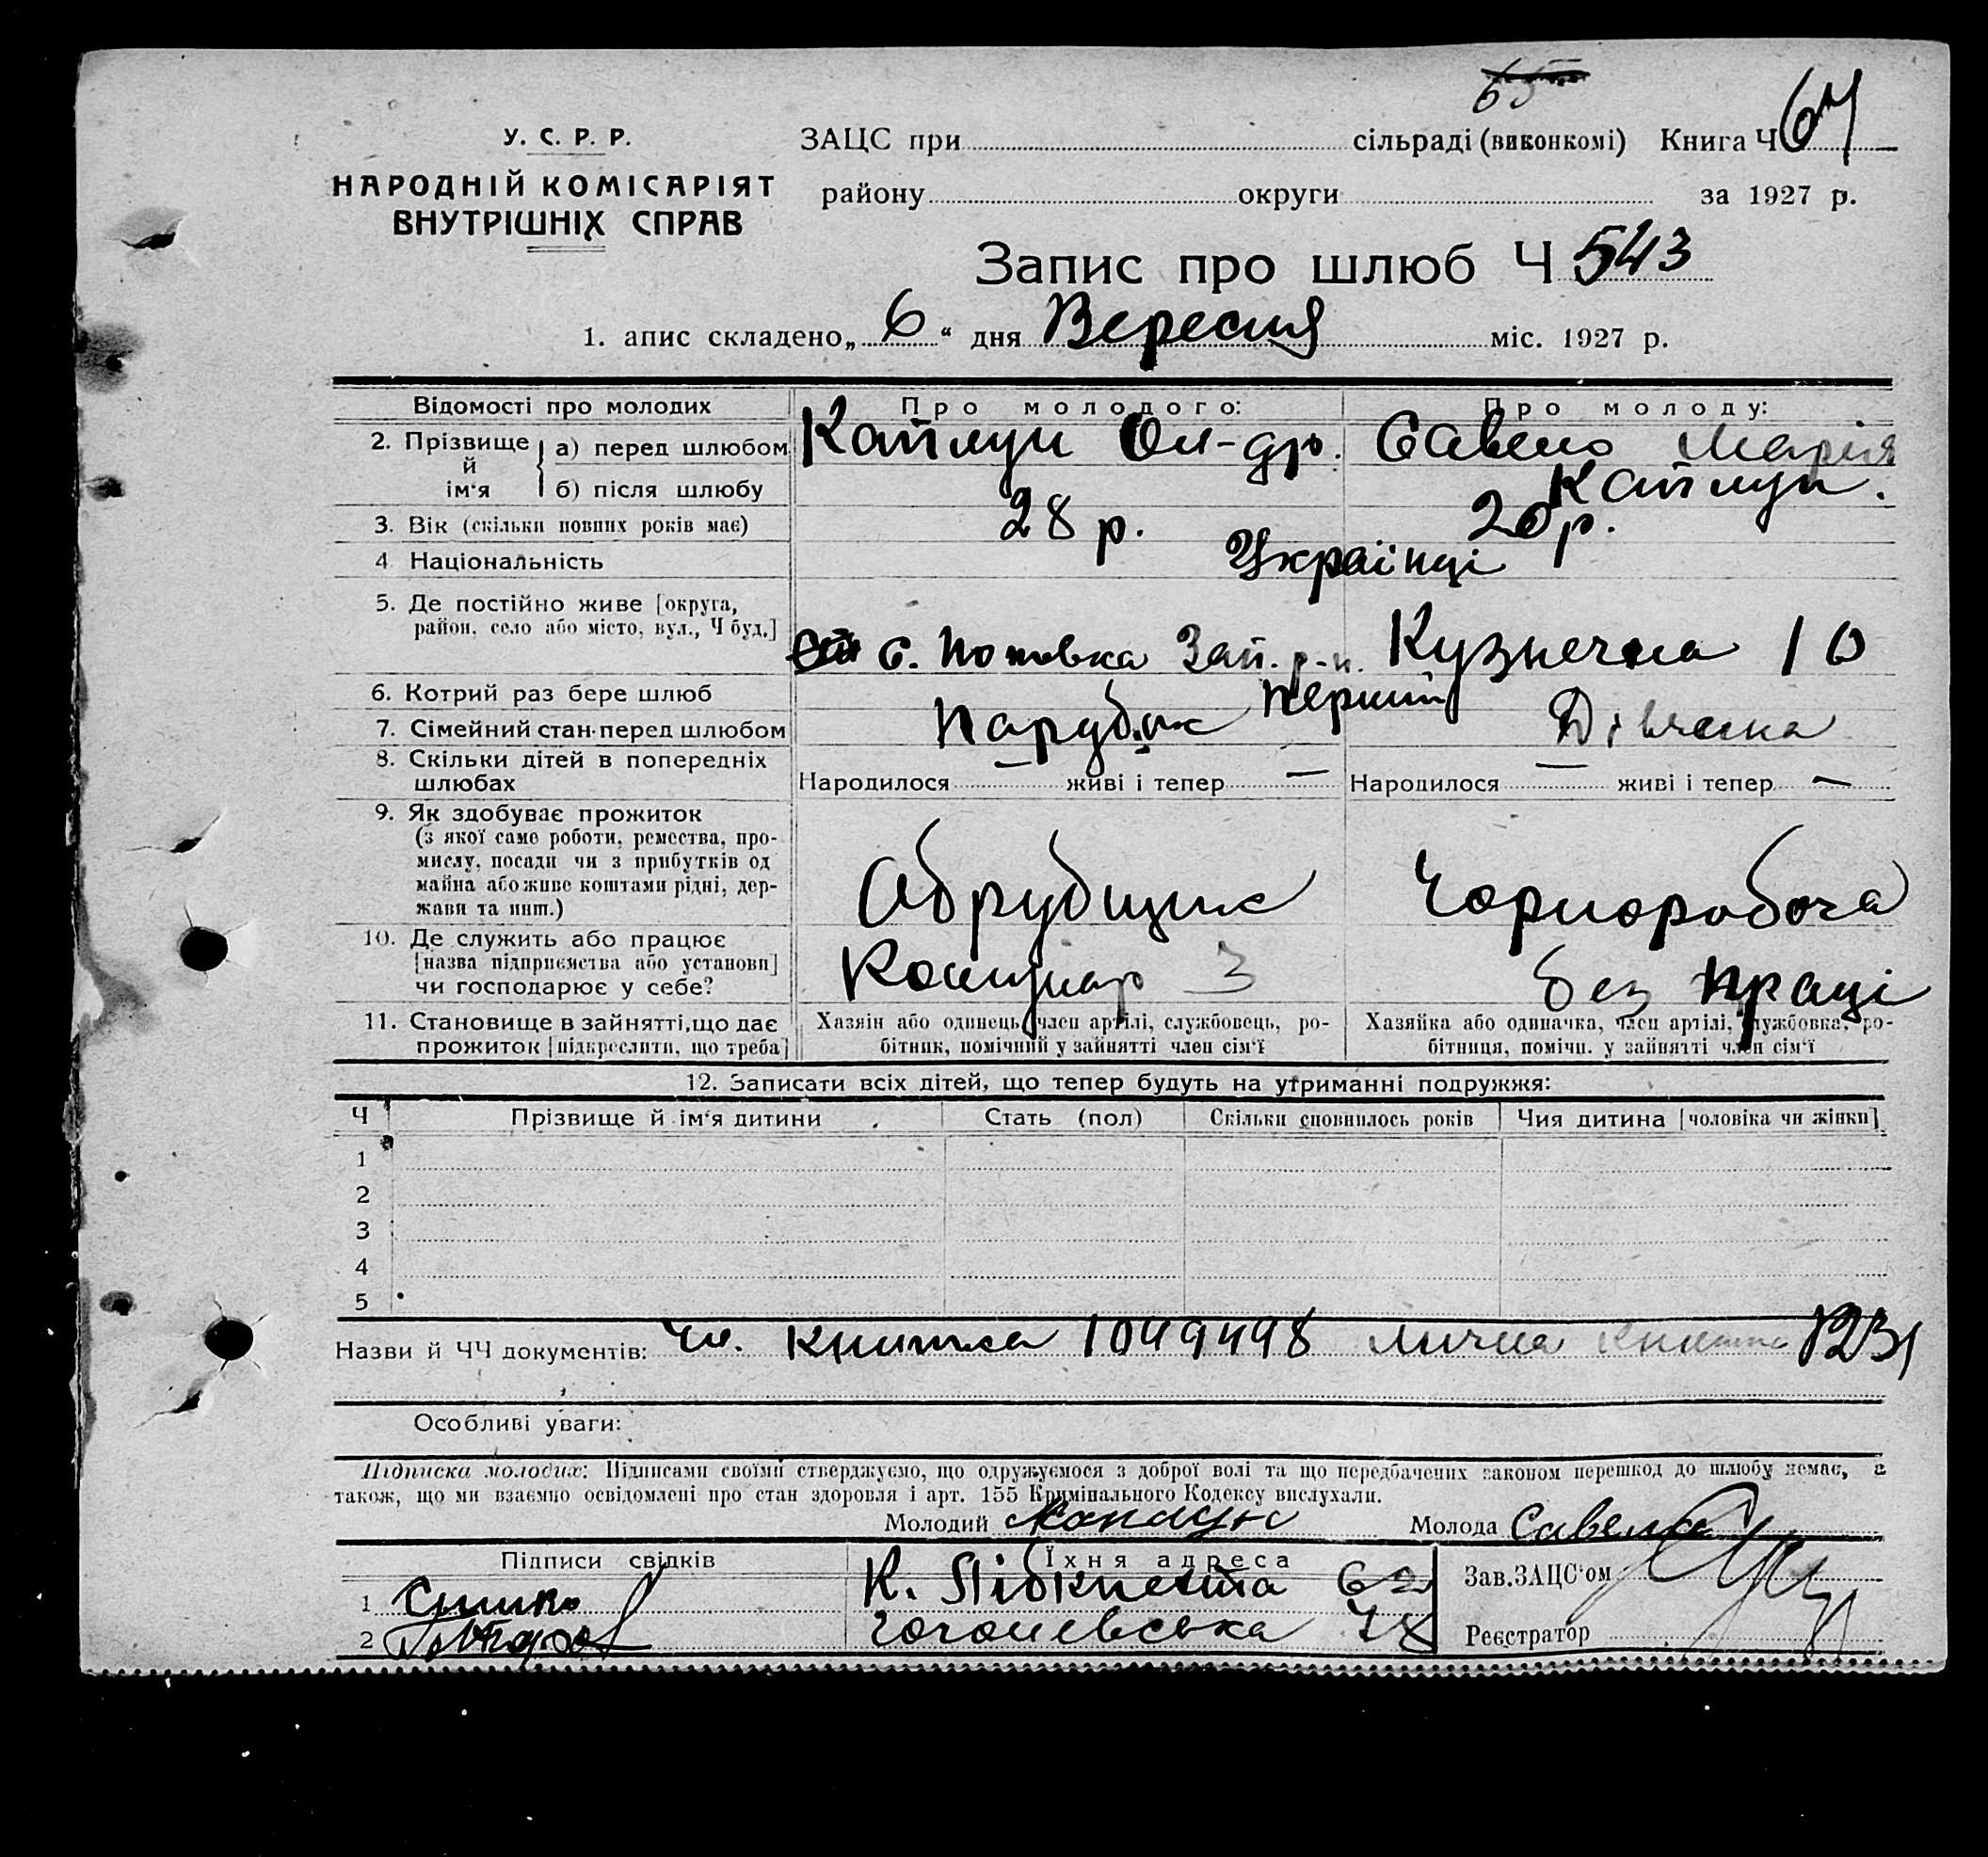 65
У. С. Р. Р.
НАРОДНІЙ КОМІСАРІЯТ
ВНУТРІШНІХ СПРАВ
ЗАЦС при сільраді (виконкомі) Книга Ч 67
району округи за 1927 р.
Запис про шлюб Ч 543
1. апис складено „ 6 “ дня Вересня міс. 1927 р.
Відомості про молодих Про молодого: Про молоду:
2. Прізвище й ім‘я а) перед шлюбом Каплун Ол-др. Савено Марія
б) після шлюбу Каплун.
3. Вік (скільки повних років має) 28 р. 20 р.
4 Національність Українці
5. Де постійно живе [округа,
район, село або місто, вул., Ч буд.] с. Поповка Зап. р-н. Кузнечна 10
6. Котрий раз бере шлюб перший
7. Сімейний стан перед шлюбом Парубок Дівчина
8. Скільки дітей в попередніх
шлюбах Народилося — живі і тепер — Народилося — живі і тепер —
9. Як здобуває прожиток
(з якої саме роботи, ремества, про-
мислу, посади чи з прибутків од
майна або живе коштами рідні, дер-
жави та инш.) Обрубщик Чорноробоча
10. Де служить або працює
[назва підприємства або установи]
чи господарює у себе? Комунар З без праці
11. Становище в зайнятті, що дає
прожиток [підкреслити, що треба]
Хазяін або одинець, член артілі, службовець, ро-
бітник, помічний у зайнятті член сім‘ї
Хазяйка або одиначка, член артілі, службовка, ро-
бітниця, помічн. у зайнятті член сім‘ї
12. Записати всіх дітей, що тепер будуть на утриманні подружжя:
Ч Прізвище й ім‘я дитини Стать (пол) Скільки сповнилось років Чия дитина [чоловіка чи жінки]
1
2
3
4
5
Назви й ЧЧ документів: Чл. Книжка 1049498 лична книжка 1231
Особливі уваги:
Підписка молодих: Підписами своїми стверджуємо, що одружуємося з доброї волі та що передбачених законом перешкод до шлюбу немає, а
також, що ми взаємно освідомлені про стан здоровля і арт. 155 Кримінального Кодексу вислухали.
Молодий Каплун Молода Савена
Підписи свідків Їхня адреса Зав. ЗАЦС‘ом
1 К. Лібкнехта 62
2 Гоголевська 78 Реєстратор